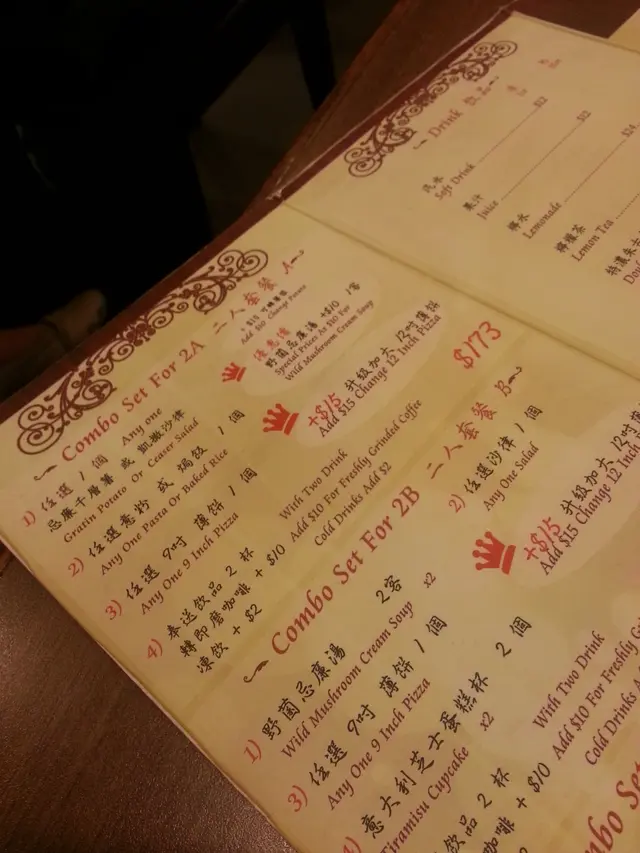 Combo Set For 2A 二人套餐 A
+ $10 可轉薯條
Add $10 Change Potato
1) 任選 1 個 Any one
忌廉千層薯 或 凱撒沙律
Gratin Potato Or Ceaser Salad
優惠價
野菌忌廉湯 +$10 1客
Special Prices At $10 For
Wild Mushroom Cream Soup
2) 任選意粉 或 焗飯 1 個
Any One Pasta Or Baked Rice
3) 任選 9吋 薄餅 1 個
Any One 9 Inch Pizza
+$15 升級加大 12吋薄餅
Add $15 Change 12 Inch Pizza
4) 奉送飲品 2 杯
轉即磨咖啡 + $10
凍飲 + $2
With Two Drink
Add $10 For Freshly Grinded Coffee
Cold Drinks Add $2
$173
Combo Set For 2B 二人套餐 B
1) 野菌忌廉湯 2客
Wild Mushroom Cream Soup x2
2) 任選沙律 1 個
Any One Salad
3) 任選 9吋 薄餅 1 個
Any One 9 Inch Pizza
+$15 升級加大 12吋薄
Add $15 Change 12 Inch
意大利芝士蛋糕杯 2 個
Tiramisu Cupcake x2
飲品 2 杯
咖啡 + $10
With Two Drink
Add $10 For Freshly G
Cold Drinks Add
Combo Set
Drink 飲品
汽水
Soft Drink
果汁
Juice
檸水
Lemonade
檸檬茶
Lemon Tea
特濃朱古